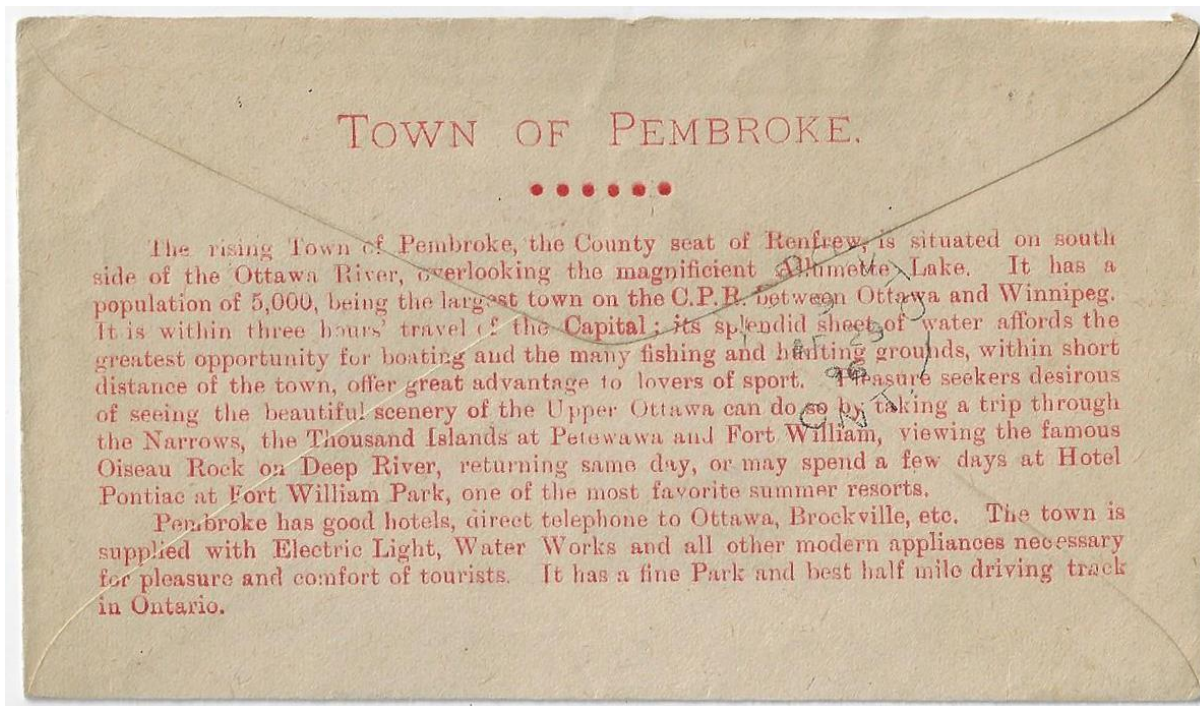 TOWN OF PEMBROKE.
The rising Town of Pembroke, the County seat of Renfrew, is situated on south
side of the Ottawa River, overlooking the magnificient Allumette Lake. It has a
population of 5,000, being the largest town on the C.P.R. between Ottawa and Winnipeg.
It is within three hours' travel of the Capital; its splendid sheet of water affords the
greatest opportunity for boating and the many fishing and hunting grounds, within short
distance of the town, offer great advantage to lovers of sport. Pleasure seekers desirous
of seeing the beautiful scenery of the Upper Ottawa can do so by taking a trip through
the Narrows, the Thousand Islands at Petewawa and Fort William, viewing the famous
Oiseau Rock on Deep River, returning same day, or may spend a few days at Hotel
Pontiac at Fort William Park, one of the most favorite summer resorts.
Pembroke has good hotels, direct telephone to Ottawa, Brockville, etc. The town is
supplied with Electric Light, Water Works and all other modern appliances necessary
for pleasure and comfort of tourists. It has a fine Park and best half mile driving track
in Ontario.
29
96
ONT